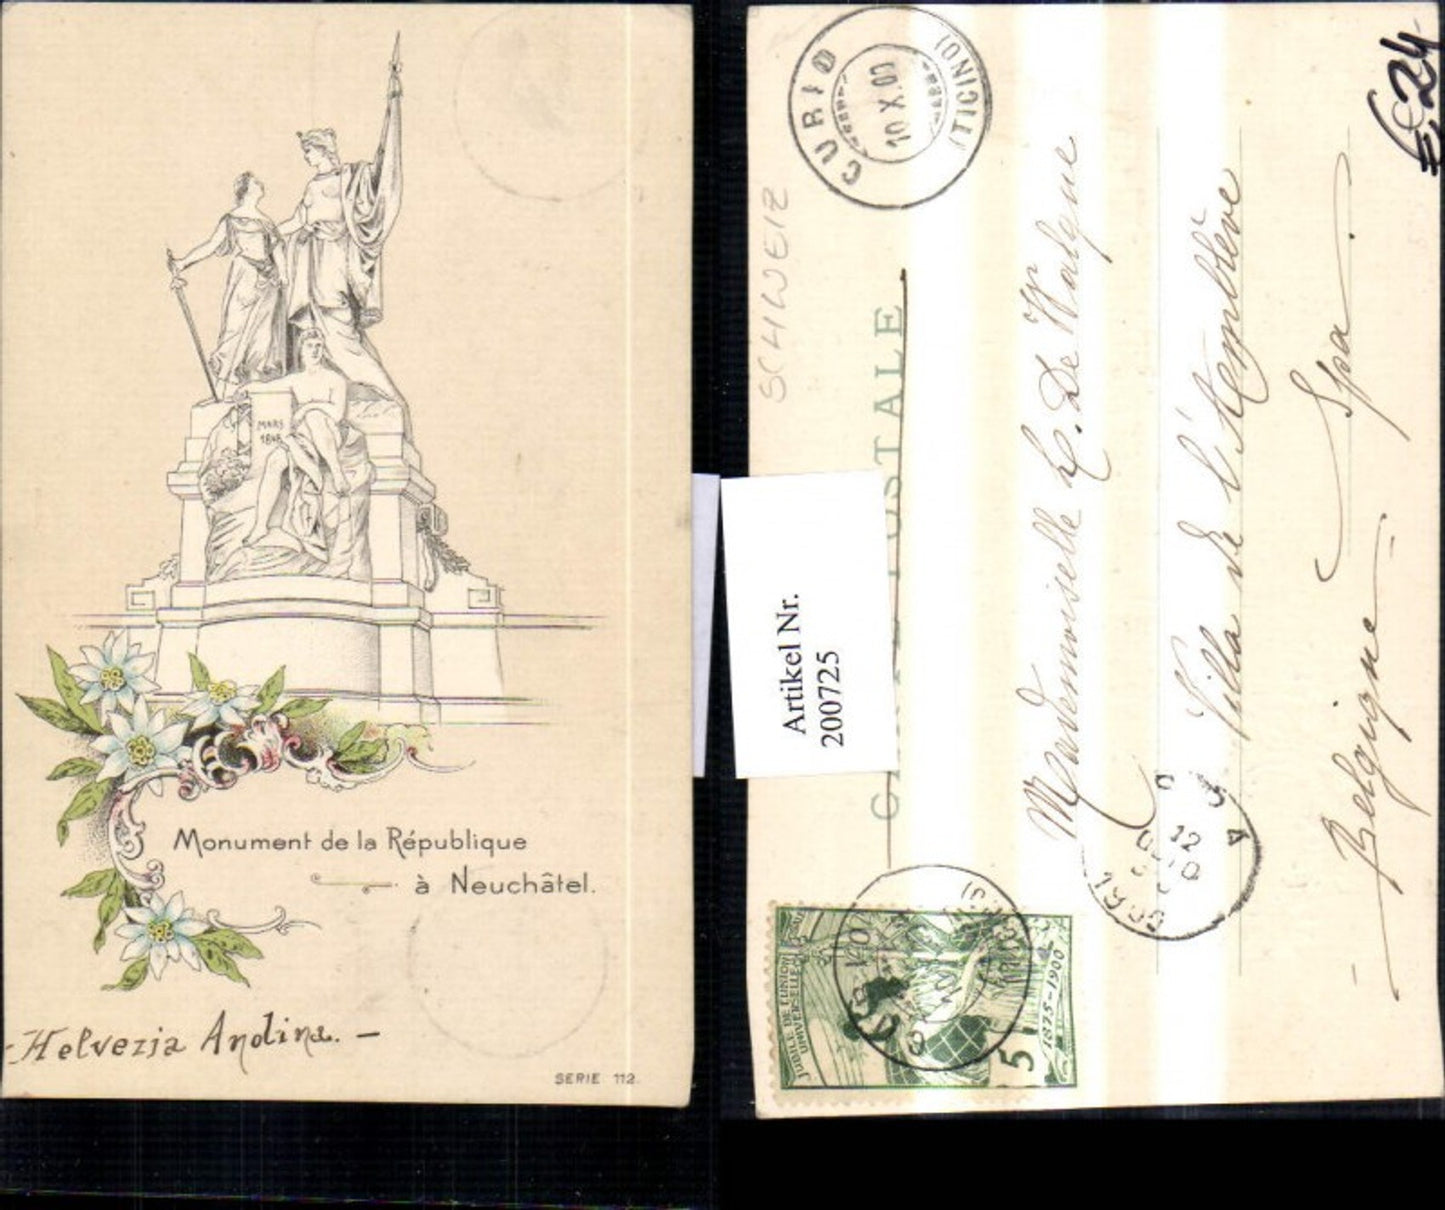 MARS
1848
Monument de la République
à Neuchâtel.
-Helvezia Andina.-
SERIE 112.
CURIO
10 X.00
(TICINO)
€ 24
SCHWEIZ
CARTE POSTALE
Artikel Nr.
200725
Mademoiselle L. De Walque
Villa de l'
Spa.
- Belgique -
CURIO
10 X
(TICINO)
JUBILÉ DE L'UNION
UNIVERSELLE
1875-1900
5